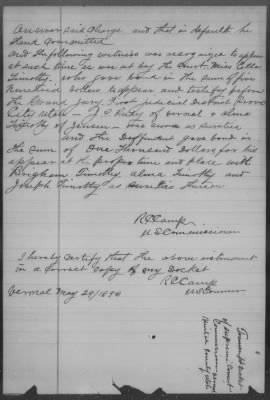 answer said charge and that in default he
stand committed
and the following witness was recognized to appear
at such time as was set by the Court Miss Ella
Timothy. who gave bond in the sum of five
hundred dollars to appear and testify before
the Grand Jury First judicial District Provo
City Utah — of Vernal & Alma
Timothy of Jensen
and the Deffendent gave bond in
the sum of One Thousand Dollars for his
appear at the proper time and place with
Brigham Timothy Alma Timothy and
Joseph Timothy as sureties
R C Camp
U S Commissioner
I hereby certify that the above instrument
is a correct copy of my Docket
R C Camp
U S Commr
Vernal May 29/1890